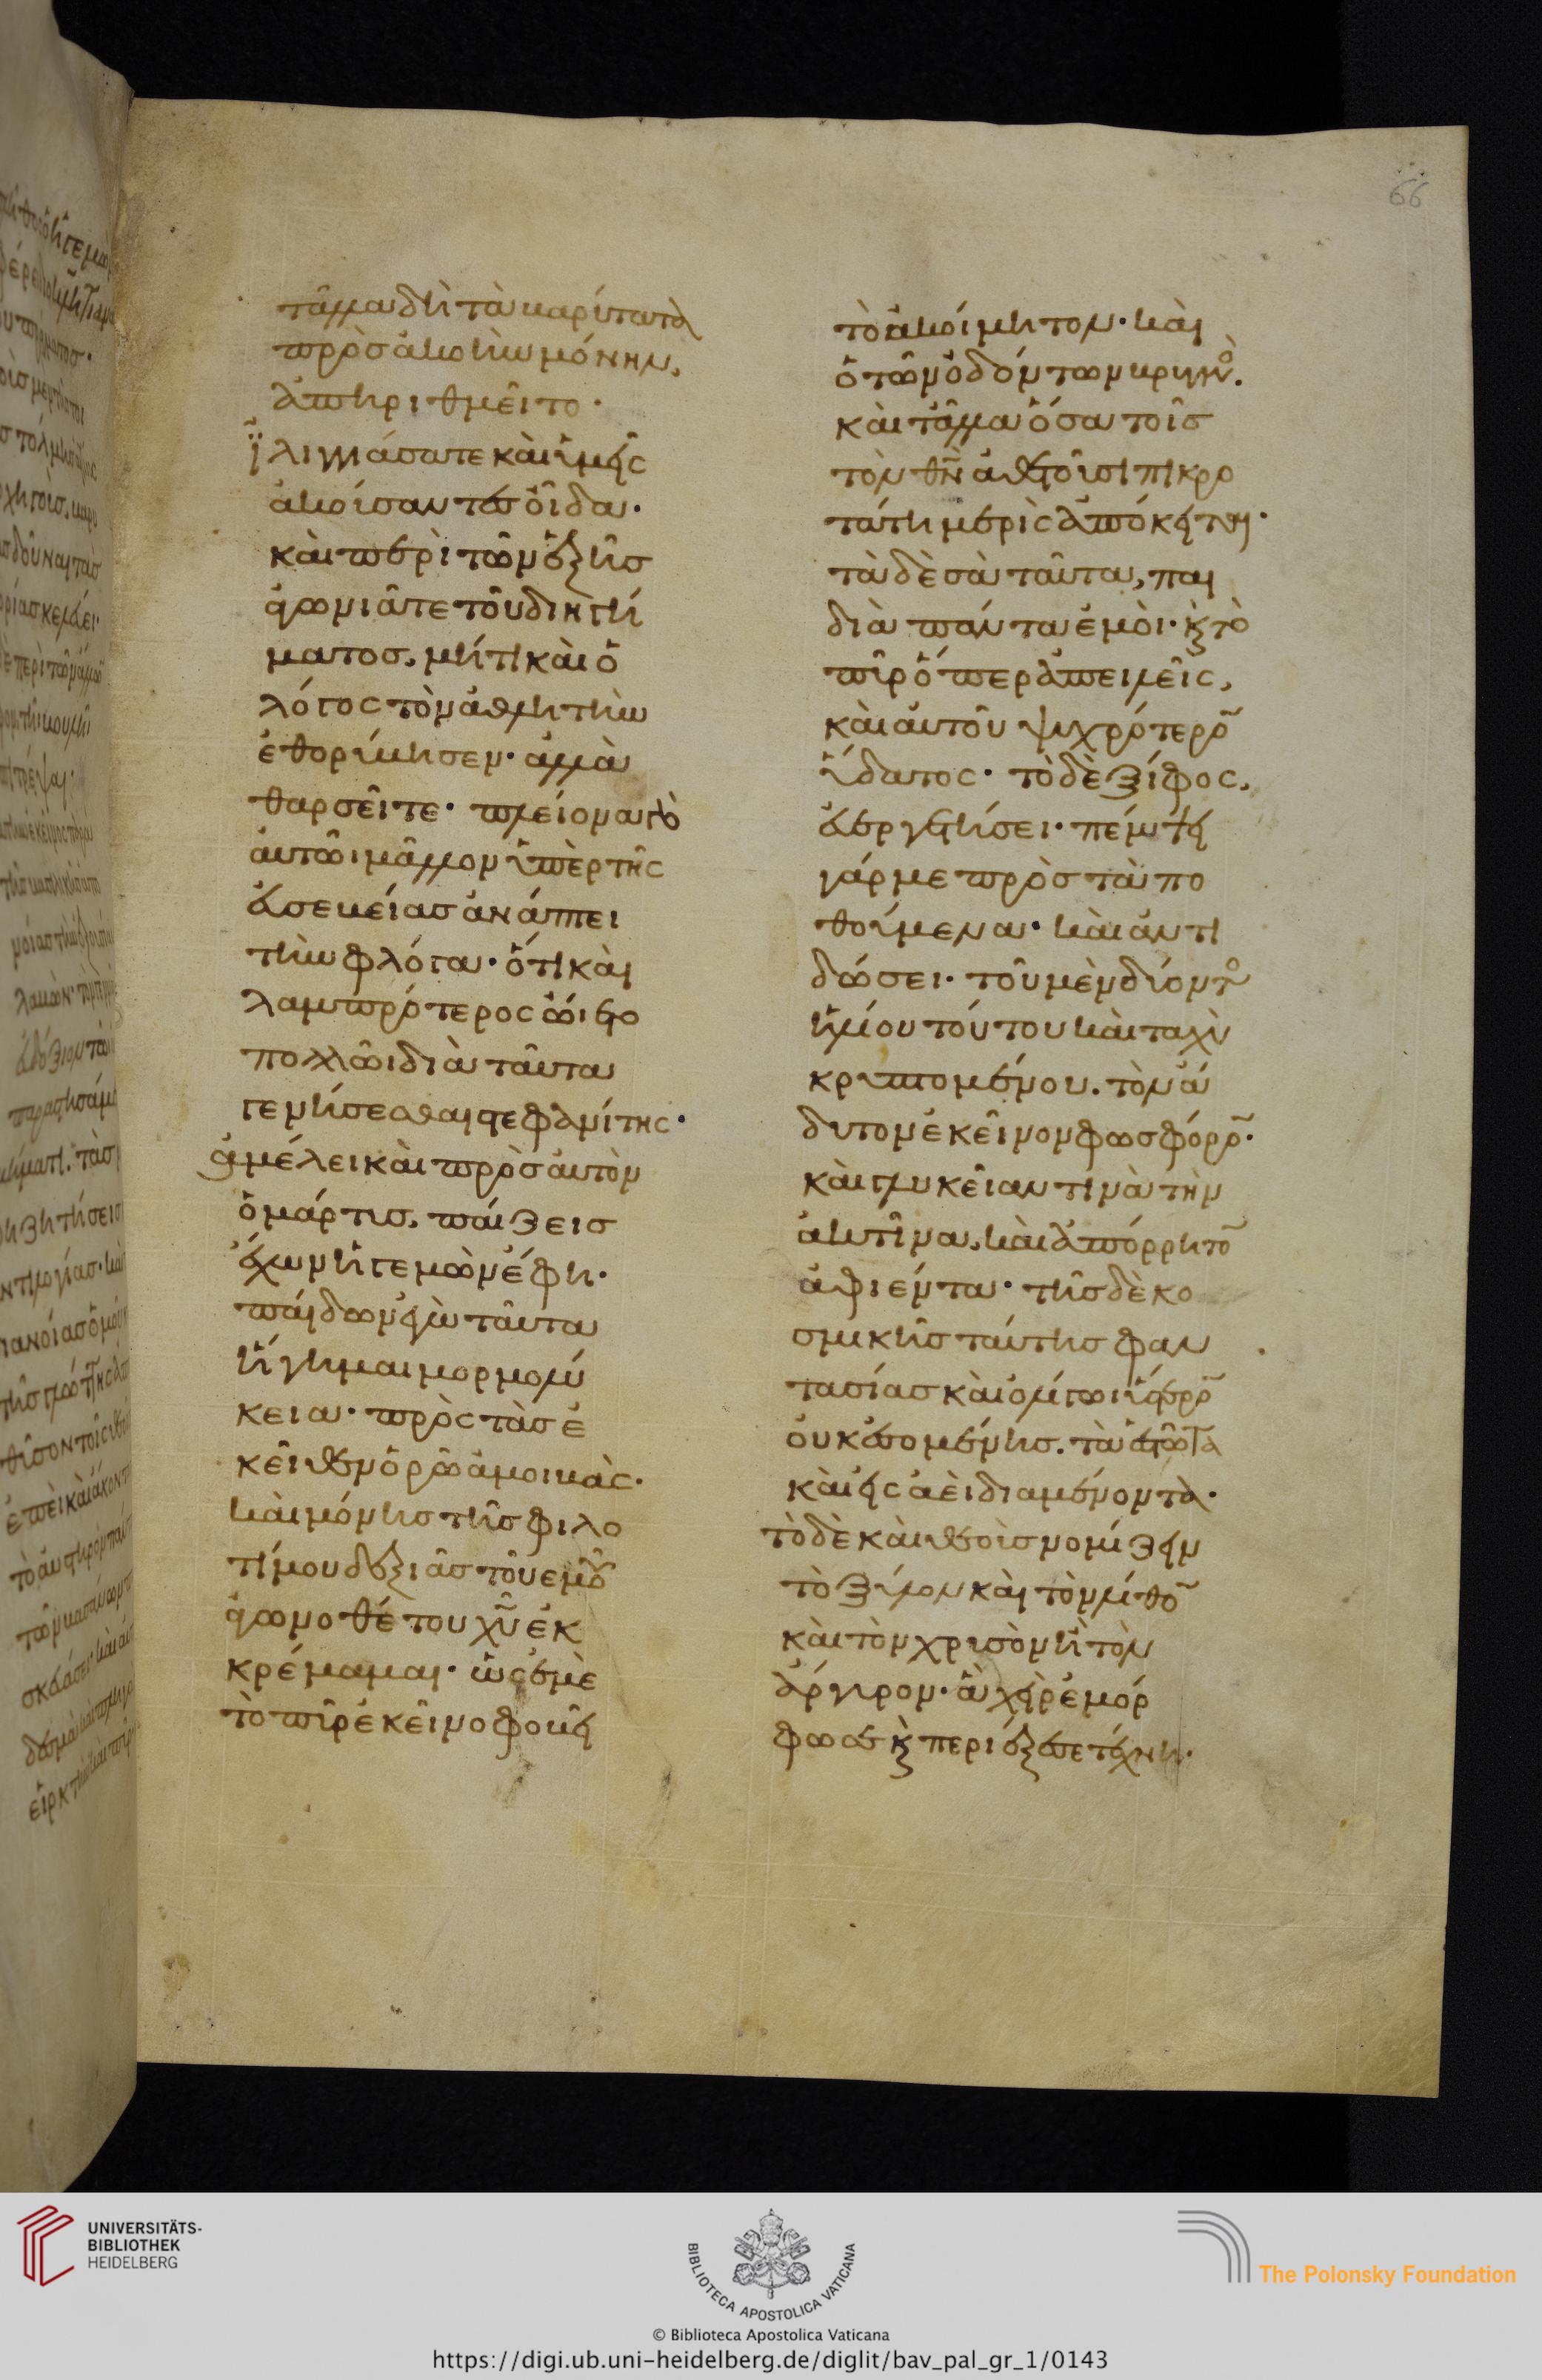 66
τἄλλα δὴ τὰ βαρύτατα
πρὸσ ἀκοὴν μόνην,
ἀπηριθμεῖτο·
ἰλιγγιάσατε καὶ ὑμεῖς
ἀκούσαντεσ οἶδα·
καὶ περὶ τῶν ἑξῆσ
ἀγωνιᾶτε τοῦ διηγή
ματοσ, μήτι καὶ ὁ
λόγος τὸν ἀθλητὴν
ἐθορύβησεν· ἀλλὰ
θαρσεῖτε· πλείονα γὰρ
αὐτῶι μᾶλλον ὑπὲρ τῆς
εὐσεβείασ ἀνάπτει
τὴν φλόγα· ὅτι καὶ
λαμπρότερος ὤιετο
πολλῶι διὰ ταῦτα
γενήσεσθαι στεφανίτης·
ἀμέλει καὶ πρὸσ αὐτὸν
ὁ μάρτυσ, παίζεισ
ἔχων ἡγεμὼν ἔφη·
παίδων ἐγὼ ταῦτα
ἥγημαι μορμολύ
κεια· πρὸς τὰσ ἐ
κεῖθεν ὁρῶ ἀμοιβὰς·
καὶ μόνησ τῆσ φιλο
τίμου δεξιᾶσ τοῦ ἐμοῦ
ἀγωνοθέτου χ̅υ̅ ἐκ
κρέμαμαι· ὡς ἐμὲ
τὸ πῦρ ἐκεῖνο φοβεῖ
τὸ ἀκοίμητον· καὶ
ὁ τῶν ὀδόντων βρυγμὸς.
καὶ τἄλλα ὅσα τοῖσ
τὸν θ̅ν̅ ἀθετοῦσι πικρο
τάτη μερὶς ἀπόκειται·
τὰ δὲ σὰ ταῦτα, παι
διὰ πάντα ἐμοὶ· ϗ τὸ
πῦρ ὅπερ ἀπειλεῖς,
καὶ αὐτοῦ ψυχρότερον
ὕδατος· τὸ δὲ ξίφος,
εὐεργετήσει· πέμψει
γάρ με πρὸσ τὰ πο
θούμενα· καὶ ἀντι
δώσει· τοῦ μὲν δύοντος
ἡλίου τούτου καὶ ταχὺ
κρυπτομένου. τὸν ἄ
δυτον ἐκεῖνον φωσφόρον·
καὶ γλυκεῖαν τινὰ τὴν
ἀκτῖνα, καὶ ἀπόρρητον
ἀφιέντα· τῆσ δὲ κο
σμικῆσ ταύτησ φαν
τασίασ καὶ ὀλίγωι ὕστερον
οὐκ ἐσομένησ. τὰ ἑστῶτα
καὶ εἰς ἀεὶ διαμένοντα·
τὸ δὲ καὶ θεοὺσ νομίζειν
τὸ ξύλον καὶ τὸν λίθον
καὶ τὸν χρυσὸν ἢ τὸν
ἄργυρον· ἃ χεὶρ ἐμόρ
φωσε ϗ περιέξεσε τέχνη·
UNIVERSITÄTS-
BIBLIOTHEK
HEIDELBERG
BIBLIOTECA APOSTOLICA VATICANA
The Polonsky Foundation
© Biblioteca Apostolica Vaticana
https://digi.ub.uni-heidelberg.de/diglit/bav_pal_gr_1/0143